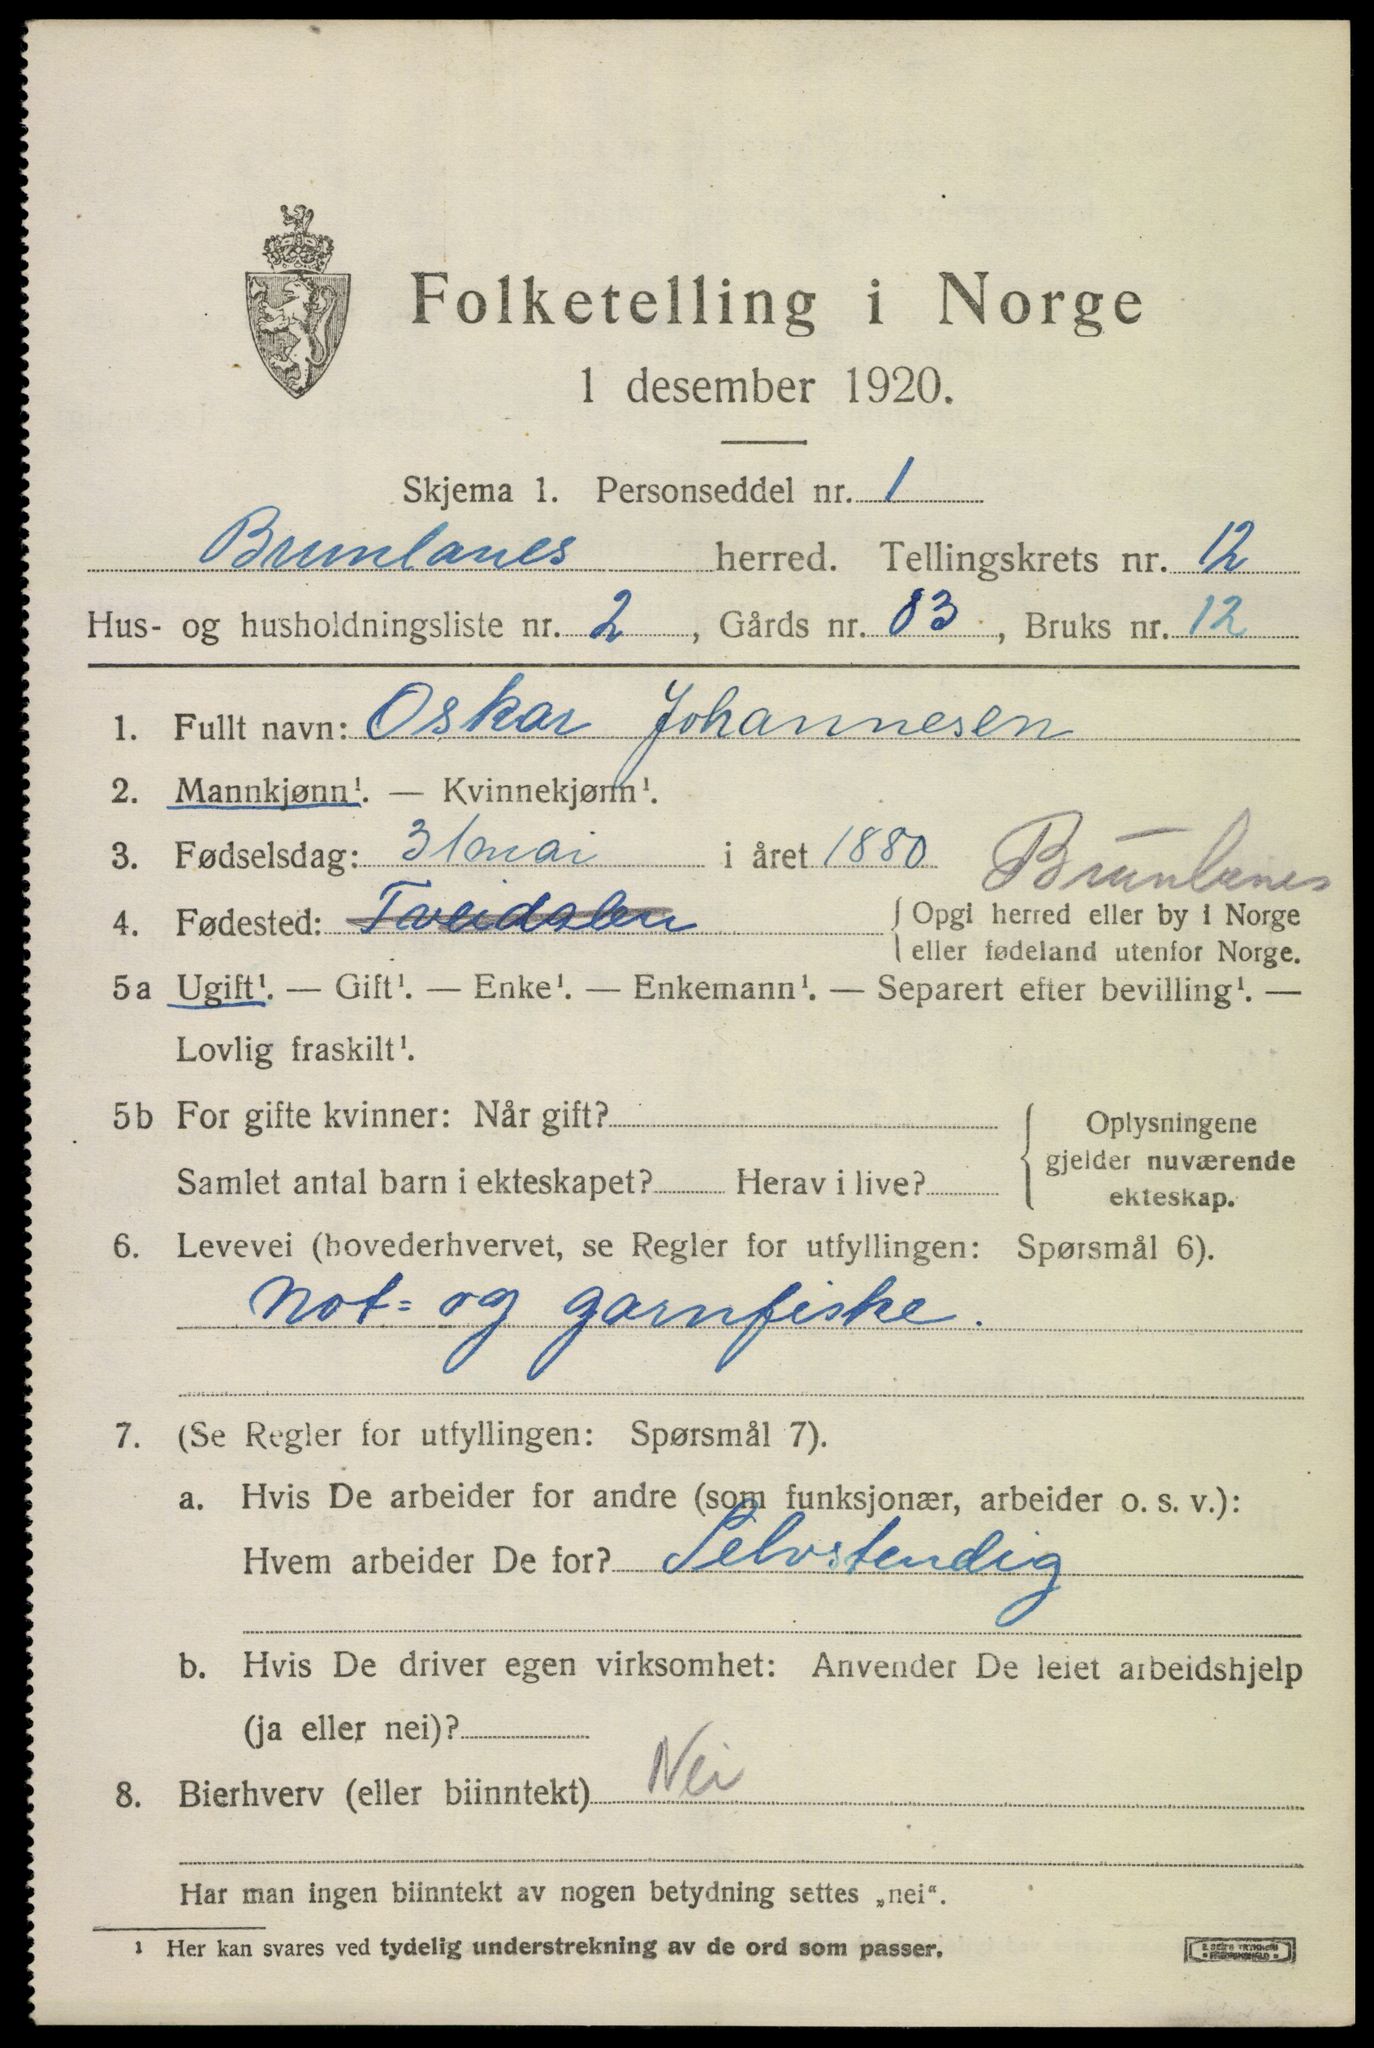 Folketelling i Norge
1 desember 1920.
Skjema 1. Personseddel nr. 1
Brunlanes herred. Tellingskrets nr. 12
Hus- og husholdningsliste nr. 2, Gårds nr. 83, Bruks nr. 12
1. Fullt navn: Oskar Johannesen
2. Mannkjønn¹. — Kvinnekjønn¹.
3. Fødselsdag: 31 mai i året 1880
Brunlanes
4. Fødested: Tveidalen { Opgi herred eller by i Norge
eller fødeland utenfor Norge.
5a Ugift¹. — Gift¹. — Enke¹. — Enkemann¹. — Separert efter bevilling¹. —
Lovlig fraskilt¹.
5b For gifte kvinner: Når gift? { Oplysningene
gjelder nuværende
Samlet antal barn i ekteskapet? Herav i live? ekteskap.
6. Levevei (hovederhvervet, se Regler for utfyllingen: Spørsmål 6).
Not= og garnfiske.
7. (Se Regler for utfyllingen: Spørsmål 7).
a. Hvis De arbeider for andre (som funksjonær, arbeider o. s. v.):
Hvem arbeider De for? Selvstendig
b. Hvis De driver egen virksomhet: Anvender De leiet arbeidshjelp
(ja eller nei)?
8. Bierhverv (eller biinntekt) Nei
Har man ingen biinntekt av nogen betydning settes „nei“.
¹ Her kan svares ved tydelig understrekning av de ord som passer.